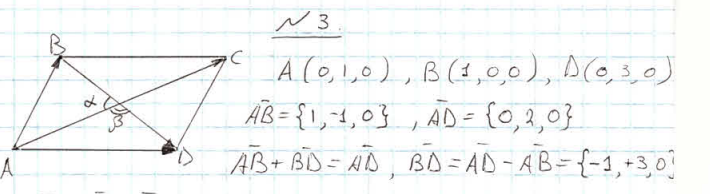 N 3.
B
C
α
β
A
D
A(0,1,0), B(1,0,0), D(0,3,0)
AB̄={1,-1,0}, AD̄={0,2,0}
AB̄+BD̄=AD̄, BD̄=AD̄-AB̄={-1,+3,0}